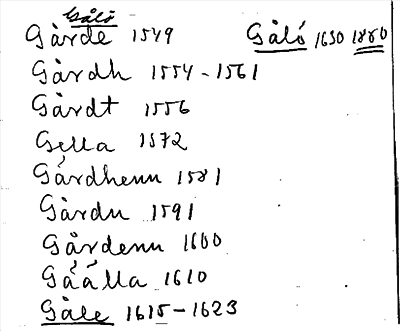 Gålö
Gårde 1549 Gålö 1650 1880
Gårdh 1554-1561
Gårdt 1556
Gella 1572
Gårdhenn 1581
Gårdn 1591
Gårdenn 1600
Gåålla 1610
Gåle 1615-1623